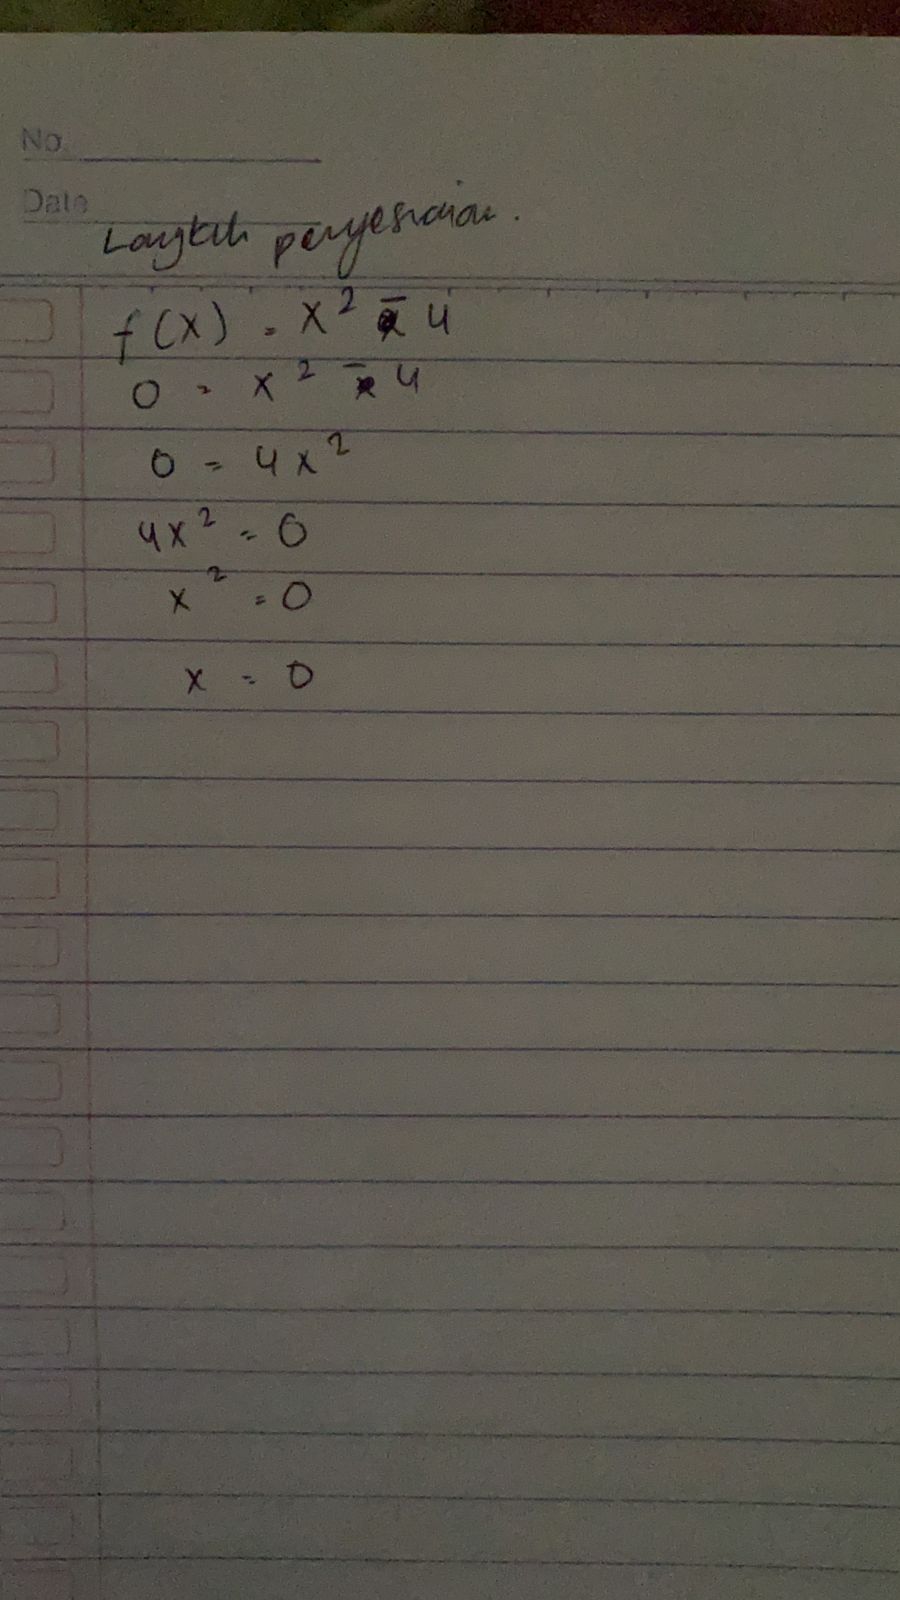 No.
Date
Langkah penyelesaian.
f(x) = x² - 4
0 = x² - 4
0 = 4x²
4x² = 0
x² = 0
x = 0